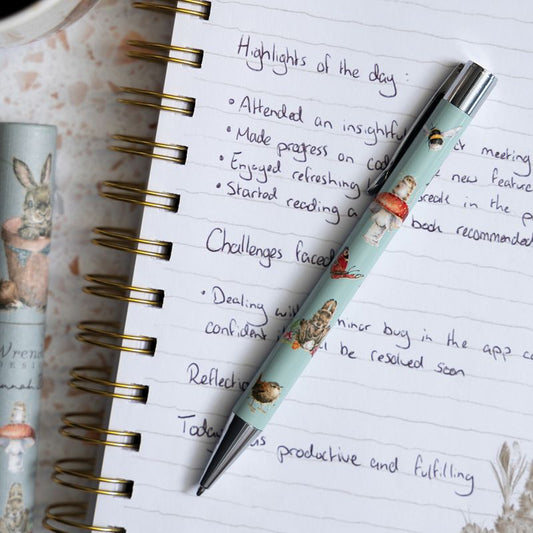 Highlights of the day:
• Attended an insightful meeting
• Made progress on new feature
• Enjoyed refreshing break in the
• Started reading a book recommended
Challenges faced
• Dealing minor bug in the app
confident be resolved soon
Today productive and fulfilling
Wrend